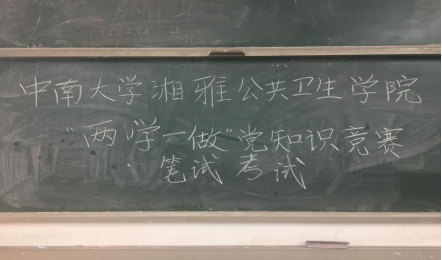 中南大学湘雅公共卫生学院
“两学一做”党知识竞赛
笔试考试